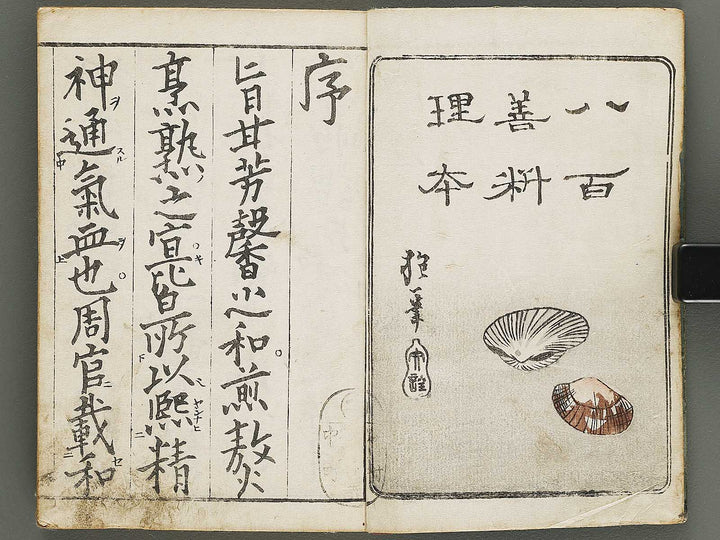 八百
善料
理本
抱一筆
序
旨甘芳馨之和煎熬
烹熟之宜皆所以熈精
神通氣血也周官載和